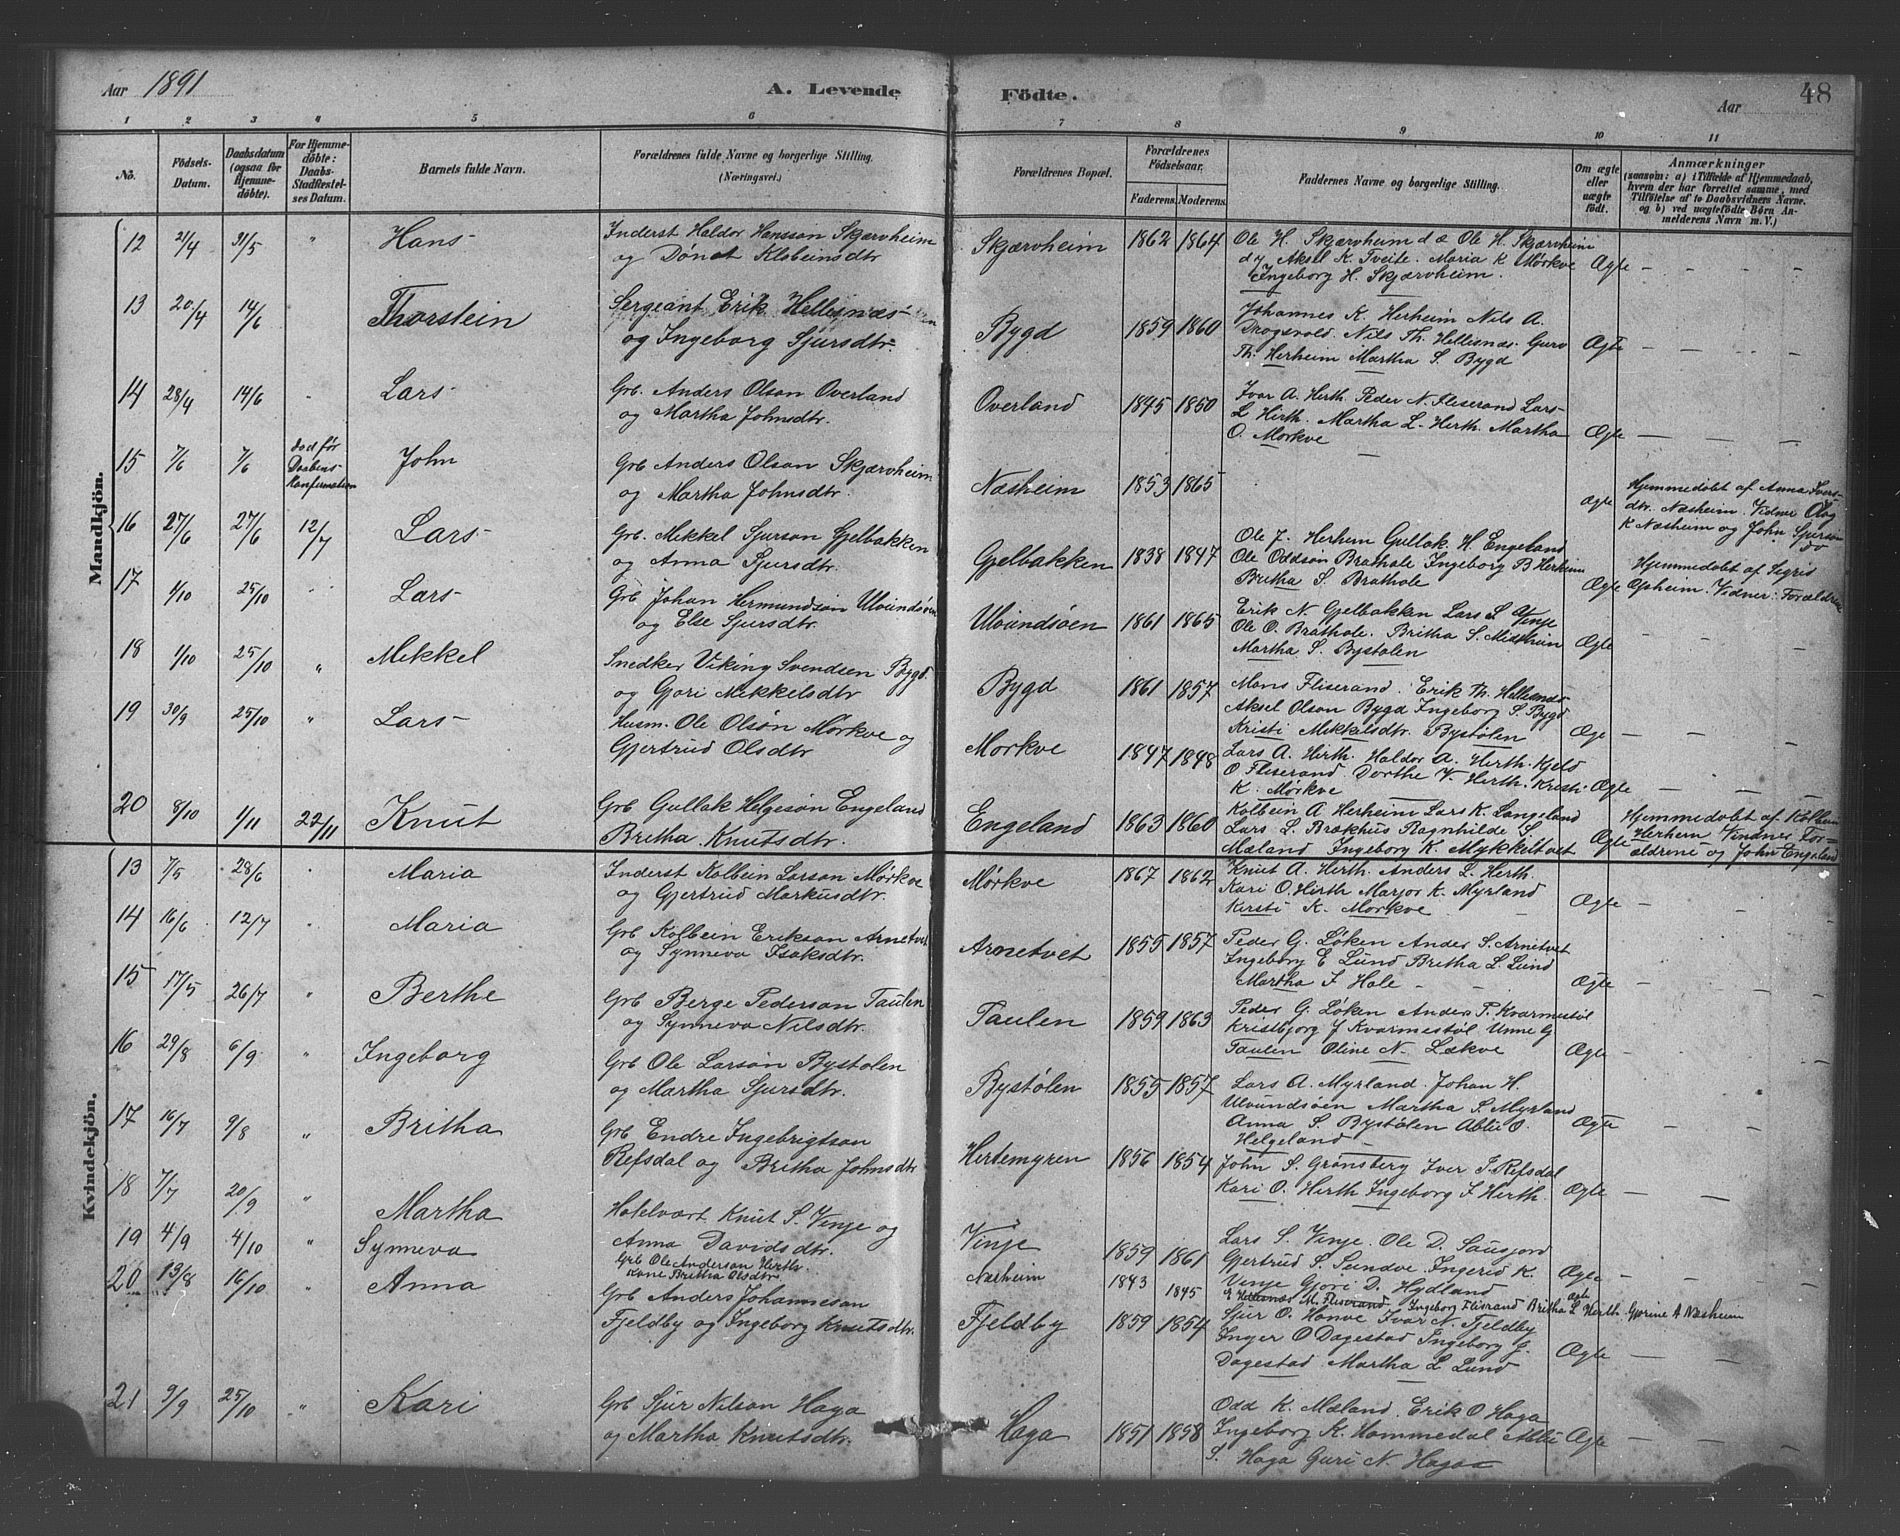 Aar 1891
A. Levende Födte.
Aar
48
1 2 3 4 5 6 7 8 9 10 11
No.
Födsels-Datum.
Daabsdatum (ogsaa for Hjemmedöbte).
For Hjemmedöbte: Daabs-Stadfæstelses Datum.
Barnets fulde Navn.
Forældrenes fulde Navne og borgerlige Stilling. (Næringsvei.)
Forældrenes Bopæl.
Forældrenes Födselsaar.
Faderens. Moderens.
Faddernes Navne og borgerlige Stilling.
Om ægte eller uægte födt.
Anmærkninger
(saasom: a) i Tilfælde af Hjemmedaab, hvem der har forrettet samme, med Tilföielse af to Daabsvidners Navne. og b) ved uægtefödte Börn Anmelderens Navn m. V.)
Mandkjön.
12 21/4 31/5 " Hans Inderst Haldor Hansson Skjærvheim og Dönot Klobeinsdtr Skjærvheim 1862 1864 Ole H. Skjærvheim d æ Ole H. Skjærvheim d y Aksel K. Tveite. Maria K Mørkve Ingeborg H. Skjærvheim. Ægte
13 20/4 14/6 Thorstein Sergeant Erik Hellesnæs og Ingeborg Sjursdtr. Bygd 1859 1860 Johannes K. Herheim Nils A. Drogsvold. Nils Th. Hellesnæs. Guro Th. Herheim Martha S. Bygd Ægte
14 28/4 14/6 " Lars Grb. Anders Olson Overland og Martha Johnsdtr. Overland 1845 1850 Ivar A. Herth. Peder N. Fliserand Lars L Hirth. Martha L. Herth. Martha O. Mørkve Ægte
15 7/6 7/6 død før Daabens Konfirmation John Grb Anders Olson Skjærvheim og Martha Johnsdtr. Næsheim 1853 1865 ægte Hjemmedøbt af Anna Ivers-dtr. Næsheim. Vidner Olav K Næsheim og John Sjurson do
16 27/6 27/6 12/7 Lars Grb. Mekkel Sjurson Gjelbakken og Anna Sjursdtr. Gjelbakken 1838 1847 Ole J. Herheim Gullak. H. Engeland Ole Oddsøn Brathole Ingeborg B Herheim Britha S. Brathole Ægte Hjemmedøbt af Sigrid Opheim. Vidner: Forældrene
17 4/10 25/10 " Lars Grb Johan Hermundsøn Ulvundsøen og Elee Sjursdtr. Ulvundsøen 1861 1865 Erik N. Gjelbakken Lars S. Vinje Ole O. Brathole. Britha S. Martha S. Bystølen Ægte
18 1/10 25/10 " Mekkel Snedker Viking Svendsen Bygd og Gjøri Mekkelsdtr Bygd 1861 1857 Mons Fliserand. Erik Th. Hellesnæs Aksel Olson Bygd Ingeborg S. Bygd Kristi Mekkelsdtr. Bystølen Æge
19 30/9 25/10 " Lars Husm. Ole Olsøn Mørkve og Gjertrud Olsdtr Mørkve 1847 1848 Lars A. Herth. Haldor A. Herth. Kjeld O Fliserand Dorthe V. Herth. Kristi K. Mørkve Ægte
20 8/10 1/11 22/11 Knut Grb Gullak Helgesøn Engeland Britha Knutsdtr. Engeland 1863 1860 Kolbein A Herheim Lars K. Langeland Lars L. Brækhus Ragnhilde S. Mæland Ingeborg K. Mykkeltvet Ægte Hjemmedøbt af Kolbein Herheim Vidner Forældrene og John Engeland
Kvindekjön.
13 7/5 28/6 Maria Inderst Kolbein Larson Mørkve og Gjertrud Markusdtr. Mørkve 1867 1862 Knut A. Herth. Anders L. Herth. Kari O. Hirth Marjor K. Myrland Kersti K. Mørkve Ægte
14 16/6 12/7 Maria Grb Kolbein Erikson Arnetvet og Synneva Isaksdtr. Arnetvet 1855 1857 Peder G. Løken Ander S. Arnetvet Ingeborg E Lund Britha L. Lund Martha J Hole Ægte
15 17/5 26/7 " Berthe Grb Berge Pederson Taulen og Synneva Nilsdtr. Taulen 1859 1863 Peder G. Løken Anders P. Kvarmestøl Kristbjorg J Kvarmestøl Unne G Taulen Oline N. Lækve Ægte
16 29/8 6/9 " Ingeborg Grb Ole Larsøn Bystølen og Martha Sjursdtr. Bystølen 1855 1857 Lars A. Myrland. Johan H. Ulvundsøen Martha S. Myrland Anna S. Bystølen Ablie O. Helgeland Ægte
17 16/7 9/8 " Britha Grb Endre Ingebrigtson Refsdal og Britha Johnsdtr Hertemyren 1856 1854 John S. Grønsberg Iver J. Refsdal Kari O. Hirth Ingeborg J Herth. Ægte
18 7/7 20/9 " Martha Hotelvært Knut S. Vinje og Anna Davidsdtr. Vinje 1859 1861 Lars S. Vinje. Ole D. Sausjord Gjertrud S. Sundve. Ingerid K. Vinje Gjøri D. Hydland Ægte
19 4/9 4/10 " Synneva Grb Ole Anderson Herth. Kone Britha Olsdtr. Næsheim 1843 1845 M. Fliserand Ingeborg Fliserand Britha L Herth. Gjørine A Næsheim ægte
20 13/8 16/10 " Anna Grb Anders Johanneson Fjeldby og Ingeborg Knutsdtr. Fjeldby 1859 1854 Sjur O. Hanve Ivar N. Fjeldby Inger O Dagestad Ingeborg G. Dagestad Martha L Lund Ægte
21 9/9 25/10 " Kari Grb Sjur Nilson Haga og Martha Knutsdtr. Haga 1851 1858 Odd K. Mæland. Erik O Haga Ingeborg K. Hommedal Ablie S. Haga Guri N. Haga Ægte